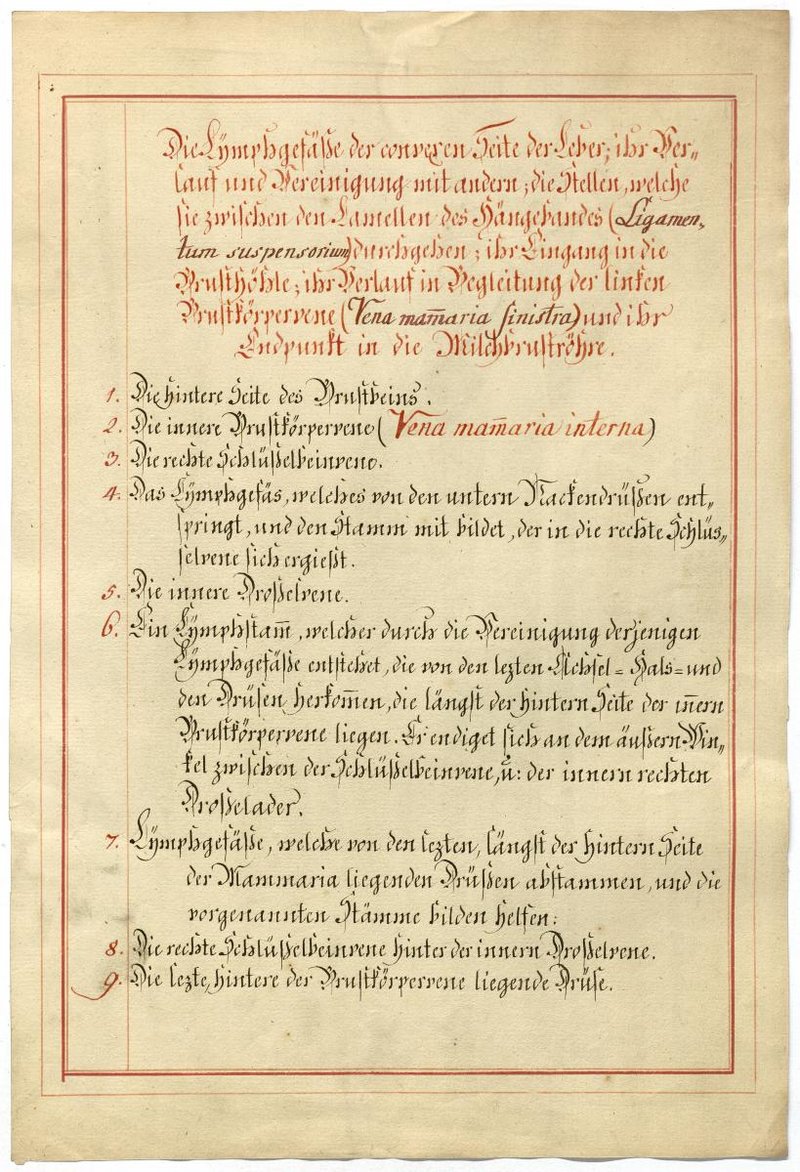 Die Lÿmphgefäße der convexen Seite der Leber; ihr Ver„
lauf und Vereinigung mit andern; die Stellen, welche
sie zwischen den Lamellen des Hängebandes (Ligamen„
tum suspensorium) durchgehen; ihr Eingang in die
Brusthöhle; ihr Verlauf in Begleitung der linken
Brustkörpervene (Vena mam̅aria sinistra) und ihr
Endpunkt in die Milchbruströhre.
1. Die hintere Seite des Brustbeins.
2. Die innere Brustkörpervene (Vena mam̅aria interna)
3. Die rechte Schlüßelbeinvene.
4. Das Lÿmphgefäs, welches von den untern Nackendrüßen ent„
springt, und den Stamm mit bildet, der in die rechte Schlüs„
selvene sich ergießt.
5. Die innere Droßelvene.
6. Ein Lÿmphstam̅, welcher durch die Vereinigung derjenigen
Lÿmphgefäße entstehet, die von den lezten Achsel= Hals= und
den Drüsen herkom̅en, die längst der hintern Seite der in̅ern
Brustkörpervene liegen. Er endiget sich an dem äußern Win„
kel zwischen der Schlüßelbeinvene, u: der innern rechten
Droßelader.
7. Lÿmphgefäße, welche von den lezten, längst der hintern Seite
der Mammaria liegenden Drüßen abstammen, und die
vorgenannten Stämme bilden helfen.
8. Die rechte Schlüßelbeinvene hinter der innern Droßelvene.
9. Die lezte, hintere der Brustkörpervene liegende Drüse.